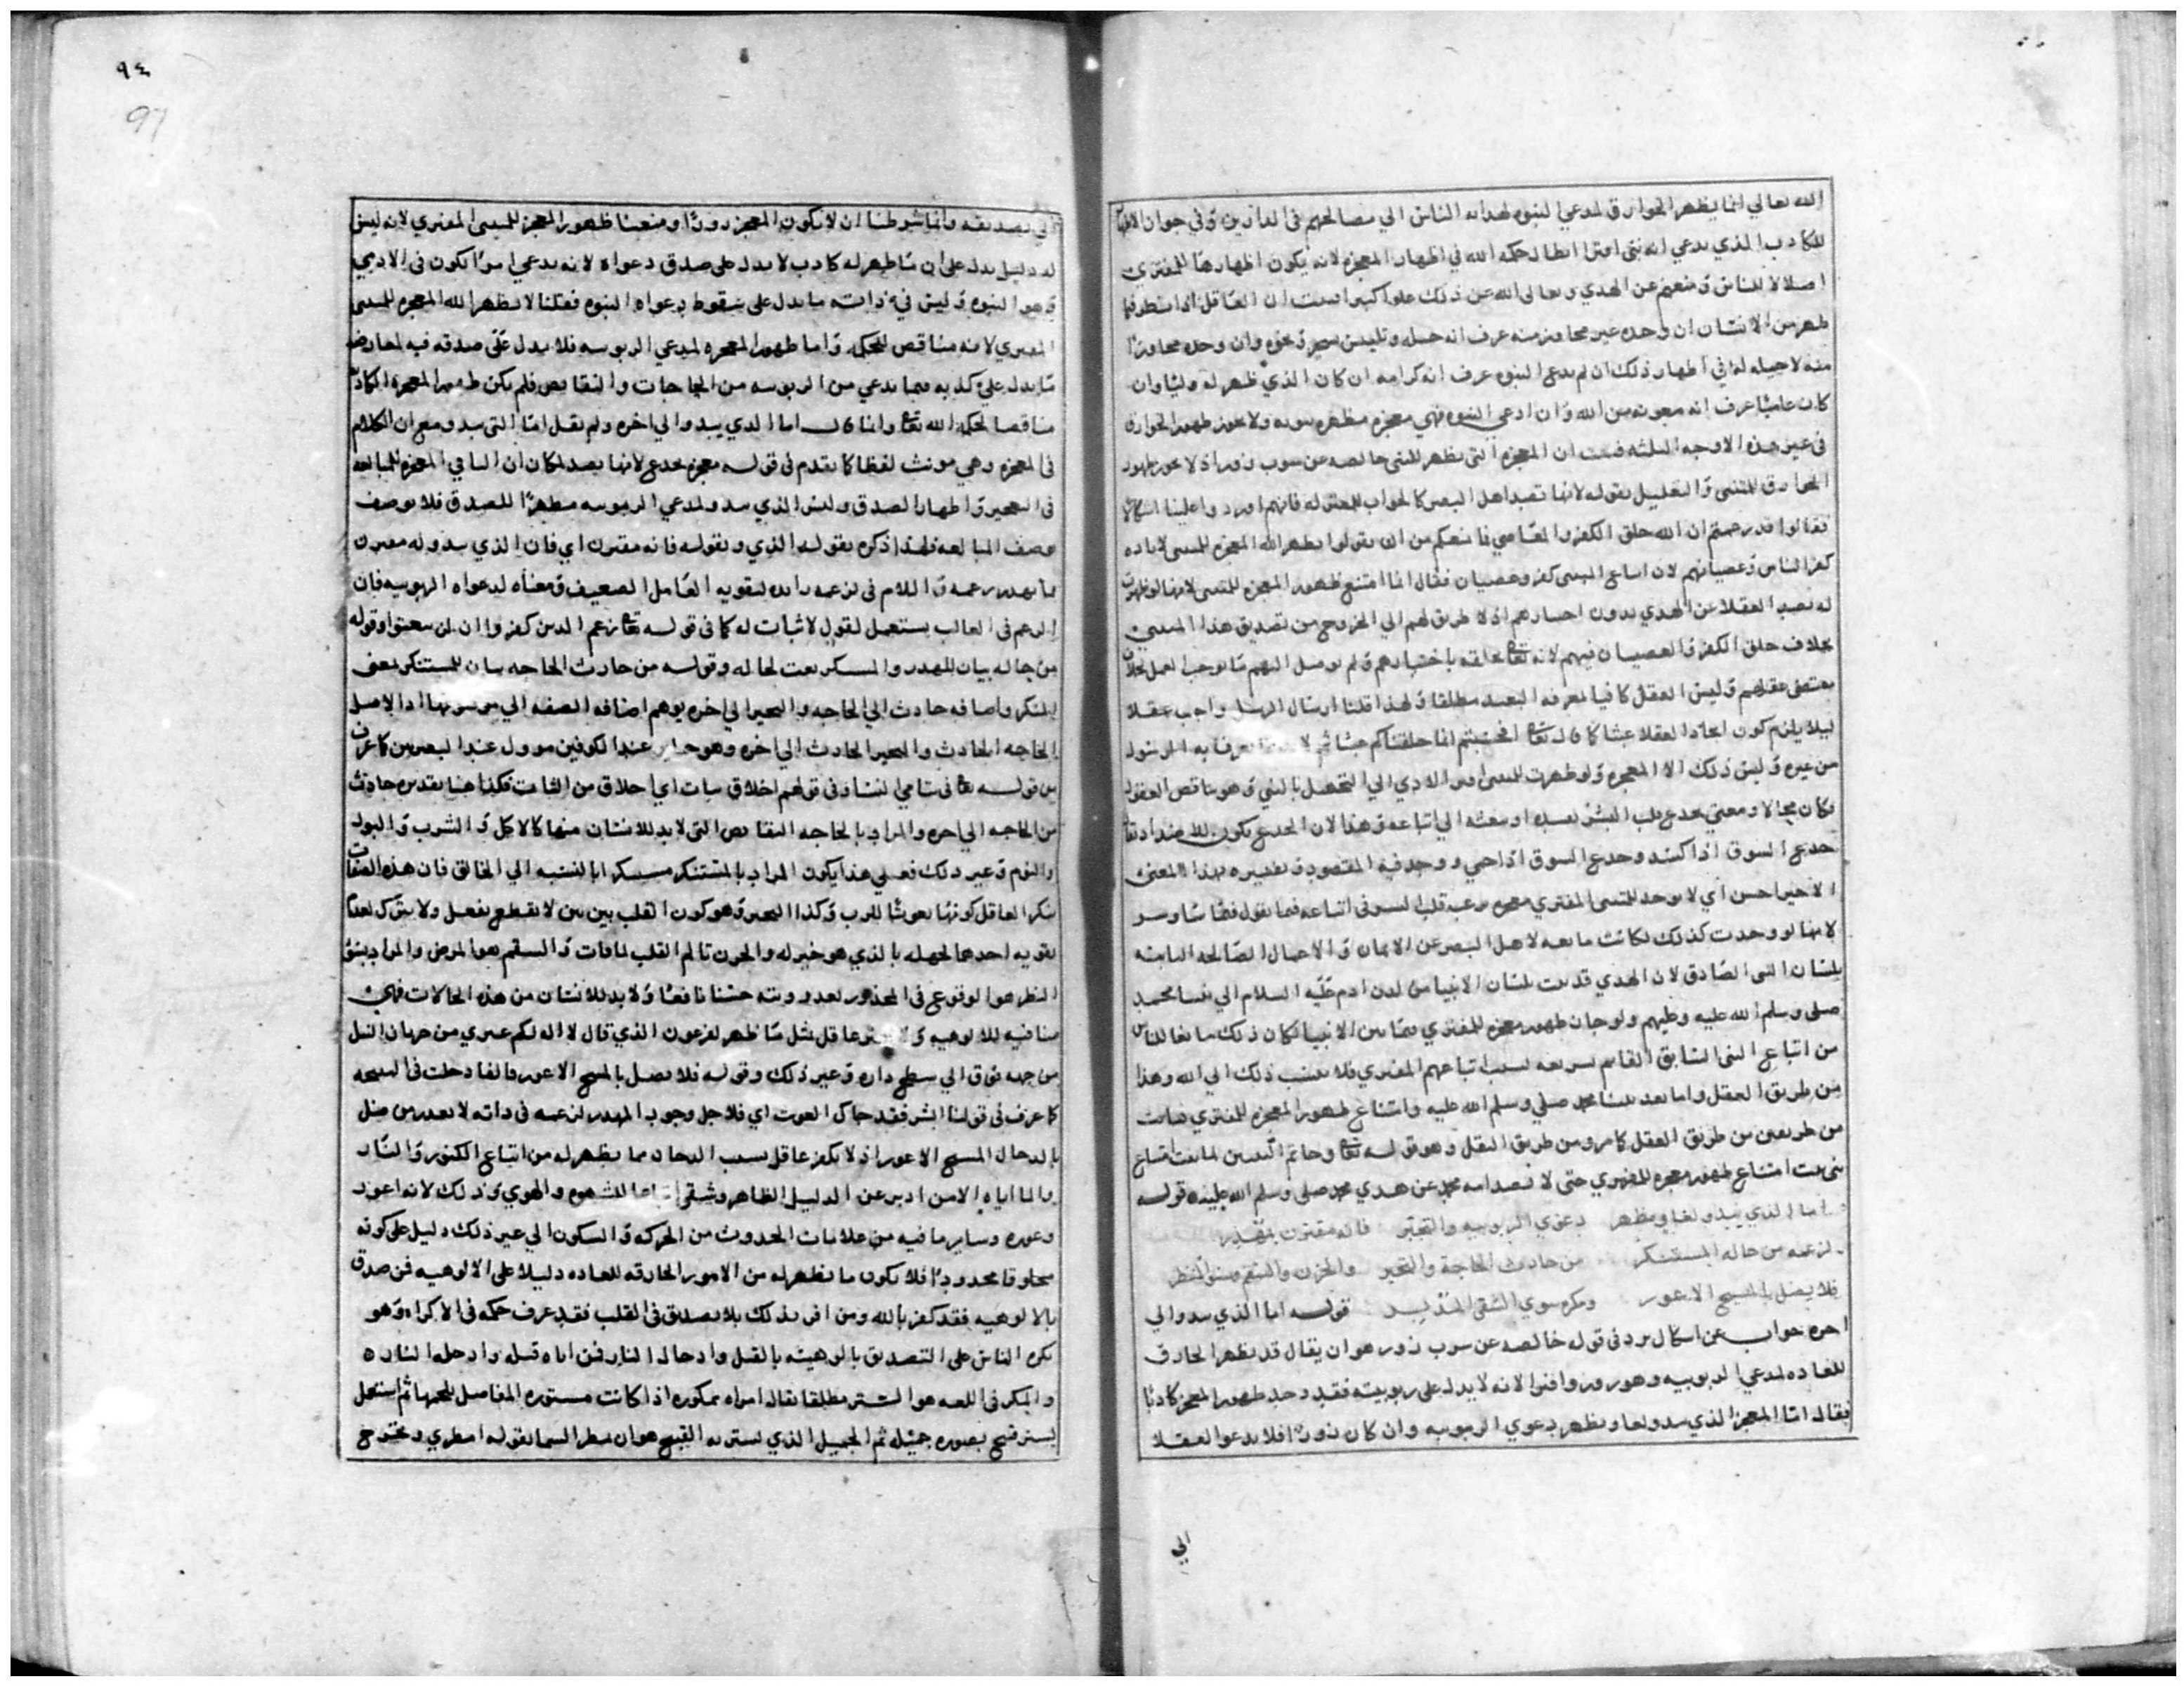 الله تعالي انما يظهر الخوارق لمدعي النبوه لهدايه الناس الي مصالحهم في الدارين وفي جواز الاظهار
للكاذب الذي يدعي انه نبي افترا ابطال حكمه الله في اظهار المعجزه لانه يكون اظهارها للمفتري
اضلالا للناس ومنعهم عن الهدي وتعالي الله عن ذلك علوا كبيرا ان العاقل اذا نظر فيما
ظهر من الانسان ان وجده غير مجاوز منه عرف انه حيله وتلبيس سحر ونحوه وان وجده مجاوزا
منه لا حيله له في اظهار ذلك ان لم يدع النبوه عرف انه كرامه ان كان الذي ظهر له وليا وان
كان عاميا عرف انه معونه من الله وان ادعي النبوه فهي معجزه مظهره نبوته ولا يجوز ظهور الخوارق
في غير هذه الاوجه الثلثه فثبت ان المعجزه التي يظهر للنبي خالصه عن شوب زور اذ لا يجوز ظهور
الخوارق للمتنبي والتعليل بقوله لانها تصد اهل البصر كالجواب للمعتزله فانهم اوردوا علينا اشكالا
فقالوا قد زعمتم ان الله خلق الكفر والمعاصي فما منعكم من ان تقولوا يظهر الله المعجزه للمتنبي لاراده
كفر الناس وعصيانهم لان اتباع المتنبي كفر وعصيان فقال انما امتنع ظهور المعجزه للمتنبي لانها لو ظهرت
له تصد العقلا عن الهدي بدون اختيارهم اذ لا طريق لهم الي الخروج من تصديق هذا المتنبي
بخلاف خلق الكفر والعصيان فيهم لانه تعا خالقه باختيارهم ولم يوصل اليهم ما يوجب العمل بخلاف
مقتضي عقلهم وليس العقل كافيا لمعرفه التعبد مطلقا ولهذا قلنا ارسال الرسل واجب عقلا
ليلا يلزم كون ايجاد العقلا عبثا كما قال تعا افحسبتم انما خلقناكم عبثا ثم لا بد يعرف به الرسول
من غيره وليس ذلك الا المعجزه ولو ظهرت للمتنبي الي التحصل بالنبي وهو يناقض العقول
فكان محالا ومعني يخدع قلب البشر يفسده او يميله الي اتباعه وهذا لان الخدع يكون يقال
خدع السوق اذا كسد وخدع السوق اذا حمي ووجد فيه المقصود وتفسيره بهذا المعني
الاخير احسن اي لا يوجد للمتنبي المفتري معجزه يرغب قلب البشر في اتباعه فيما يقول
لانها لو وجدت كذلك لكانت مانعه لاهل البصر عن الايمان والاعمال الصالحه الثابته
بلسان النبي الصادق لان الهدي قد ثبت بلسان الانبيا من لدن ادم عليه السلام الي نبينا محمد
صلي وسلم الله عليه وعليهم ولو جاز ظهور معجزه للمفتري فيما بين الانبيا لكان ذلك مانعا للناس
من اتباع النبي السابق القايم بشريعه بسبب اتباعهم المفتري فلا ينسب ذلك الي الله وهذا
من طريق العقل واما بعد نبينا محمد صلي وسلم الله عليه وامتناع ظهور المعجزه للمفتري ثابت
من طريقين من طريق العقل كما مر ومن طريق النقل وهو قوله تعا وخاتم النبيين لما ثبت امتناع
نبي ثبت امتناع ظهور معجزه للمفتري حتي لا تصد امه محمد عن هدي محمد صلي وسلم الله عليه قوله
اما الذي يبدو لغا ويظهر دعوي الربوبيه والتجبر فانه مقترن بمهدر
لزعمه من حاله المستنكر من حادث الحاجة والتحير والحزن والسقم وسوء النظر
فلا يضل بالمسيح الاعور ومكره سوي الشقي المدبر قوله اما الذي يبدو الي
اخره جواب عن اشكال يرد في قوله خالصه عن شوب زور هو ان يقال قد يظهر الخارق
للعاده لمدعي الربوبيه وهو زور وافترا لانه لا يدل علي ربوبيته فقد وجد ظهور المعجز كاذبا
فقال اما المعجز الذي يبدو لغا ويظهر دعوي الربوبيه وان كان زورا فلا يدعو العقلا
الي
٩٤
97
الي تصديقه وانما شرطنا ان لا يكون المعجز زورا ومنعنا ظهور المعجز للمتنبي المفتري لانه ليس
له دليل يدل علي ان ما ظهر له كاذب لا يدل علي صدق دعواه لانه يدعي امرا يكون في الادمي
وهو النبوه وليس في ذاته ما يدل علي سقوط دعواه النبوه فقلنا لا يظهر الله المعجزه للمتنبي
المفتري لانه مناقض للحكمه واما ظهور المعجزه لمدعي الربوبيه فلا يدل علي صدقه فيه لمعارضه
ما يدل علي كذبه فيما يدعي من الربوبيه من الحاجات والنقايص فلم يكن ظهور المعجزه الكاذب
مناقضا لحكمه الله تعا وانما قال اما الذي يبدو الي اخره ولم يقل اما التي تبدو مع ان الكلام
في المعجزه وهي مونث لفظا كما تقدم في قوله معجزه يخدع لانها بصدد مكان ان التا في المعجزه للمبالغه
في التعجيز واظهار الصدق وليس الذي يبدو لمدعي الربوبيه مظهرا للصدق فلا يوصف
بوصف المبالغه فلهذا ذكره بقوله الذي وبقوله فانه مقترن اي فان الذي يبدو له مقترن
بما يهدر زعمه واللام في لزعمه زايده لتقويه العامل الضعيف ومعناه لدعواه الربوبيه فان
الزعم في الغالب يستعمل لقول لا ثبات له كما في قوله تعا زعم الذين كفروا ان لن يبعثوا وقوله
من حاله بيان للمهدر والمستنكر نعت لحاله وقوله من حادث الحاجه بيان للمستنكر بمعني
المنكر واضافه حادث الي الحاجه والتحير الي اخره يوهم اضافه الصفه الي موصوفها اذ الاصل
الحاجه الحادث والتحير الحادث الي اخره وهو جايز عند الكوفيين موول عند البصريين كما عرف
من قوله تعا في يتامي النسا وفي قولهم اخلاق ثياب اي اخلاق من الثياب فكذا هنا تقديره حادث
من الحاجه الي اخره والمراد بالحاجه النقايص التي لا بد للانسان منها كالاكل والشرب والبول
والنوم وغير ذلك فعلي هذا يكون المراد بالمستنكر مستنكرا بالنسبه الي الخالق فان هذه الصفات
ينكر العاقل كونها نعوتا للرب وكذا التحير وهو كون القلب بين بين لا يقطع بفعل ولا يترك لعدم
تقويه احدهما لجهله بالذي هو خير له والحزن تالم القلب لما فات والسقم هو المرض والمراد بسوء
النظر هو الوقوع في المحذور بعد رويته حسنا نافعا ولا بد للانسان من هذه الحالات فهي
منافيه للالوهيه ولا عاقل بمثل ما ظهر لفرعون الذي قال لا اله لكم غيري من جريان النيل
من جهه فوق الي سطح داره وغير ذلك وقوله فلا يضل بالمسيح الاعور فالفا دخلت في النتيجه
كما عرف في قولنا ابشر فقد جاك الغوث اي فلاجل وجود المهدر لزعمه في ذاته لا يعذر من ضل
بالدجال المسيح الاعور اذ لا يكفر عاقل بسبب الدجال مما يظهر له من اتباع الكنوز والنار
والما اياه الا من ادبر عن الدليل الظاهر وشقي للشهوه والهوي وذلك لانه اعور
وعوره وساير ما فيه من علامات الحدوث من الحركه والسكون الي غير ذلك دليل علي كونه
مخلوقا محدودا فلا يكون ما يظهر له من الامور الخارقه للعاده دليلا علي الالوهيه فمن صدق
بالالوهيه فقد كفر بالله ومن اقر بذلك بلا تصديق في القلب فقد عرف حكمه في الاكراه وهو
يكره الناس علي التصديق بالوهيته بالقتل وادخال النار فمن اباه قتله وادخله الناره
والمكر في اللغه هو الستر مطلقا يقال امراه ممكوره اذا كانت مستوره المفاصل للحمها ثم استعمل
لستر قبيح بصوره جميله ثم الجميل الذي يستر به القبيح هو ان يمطر السما بقوله امطري ويخرج